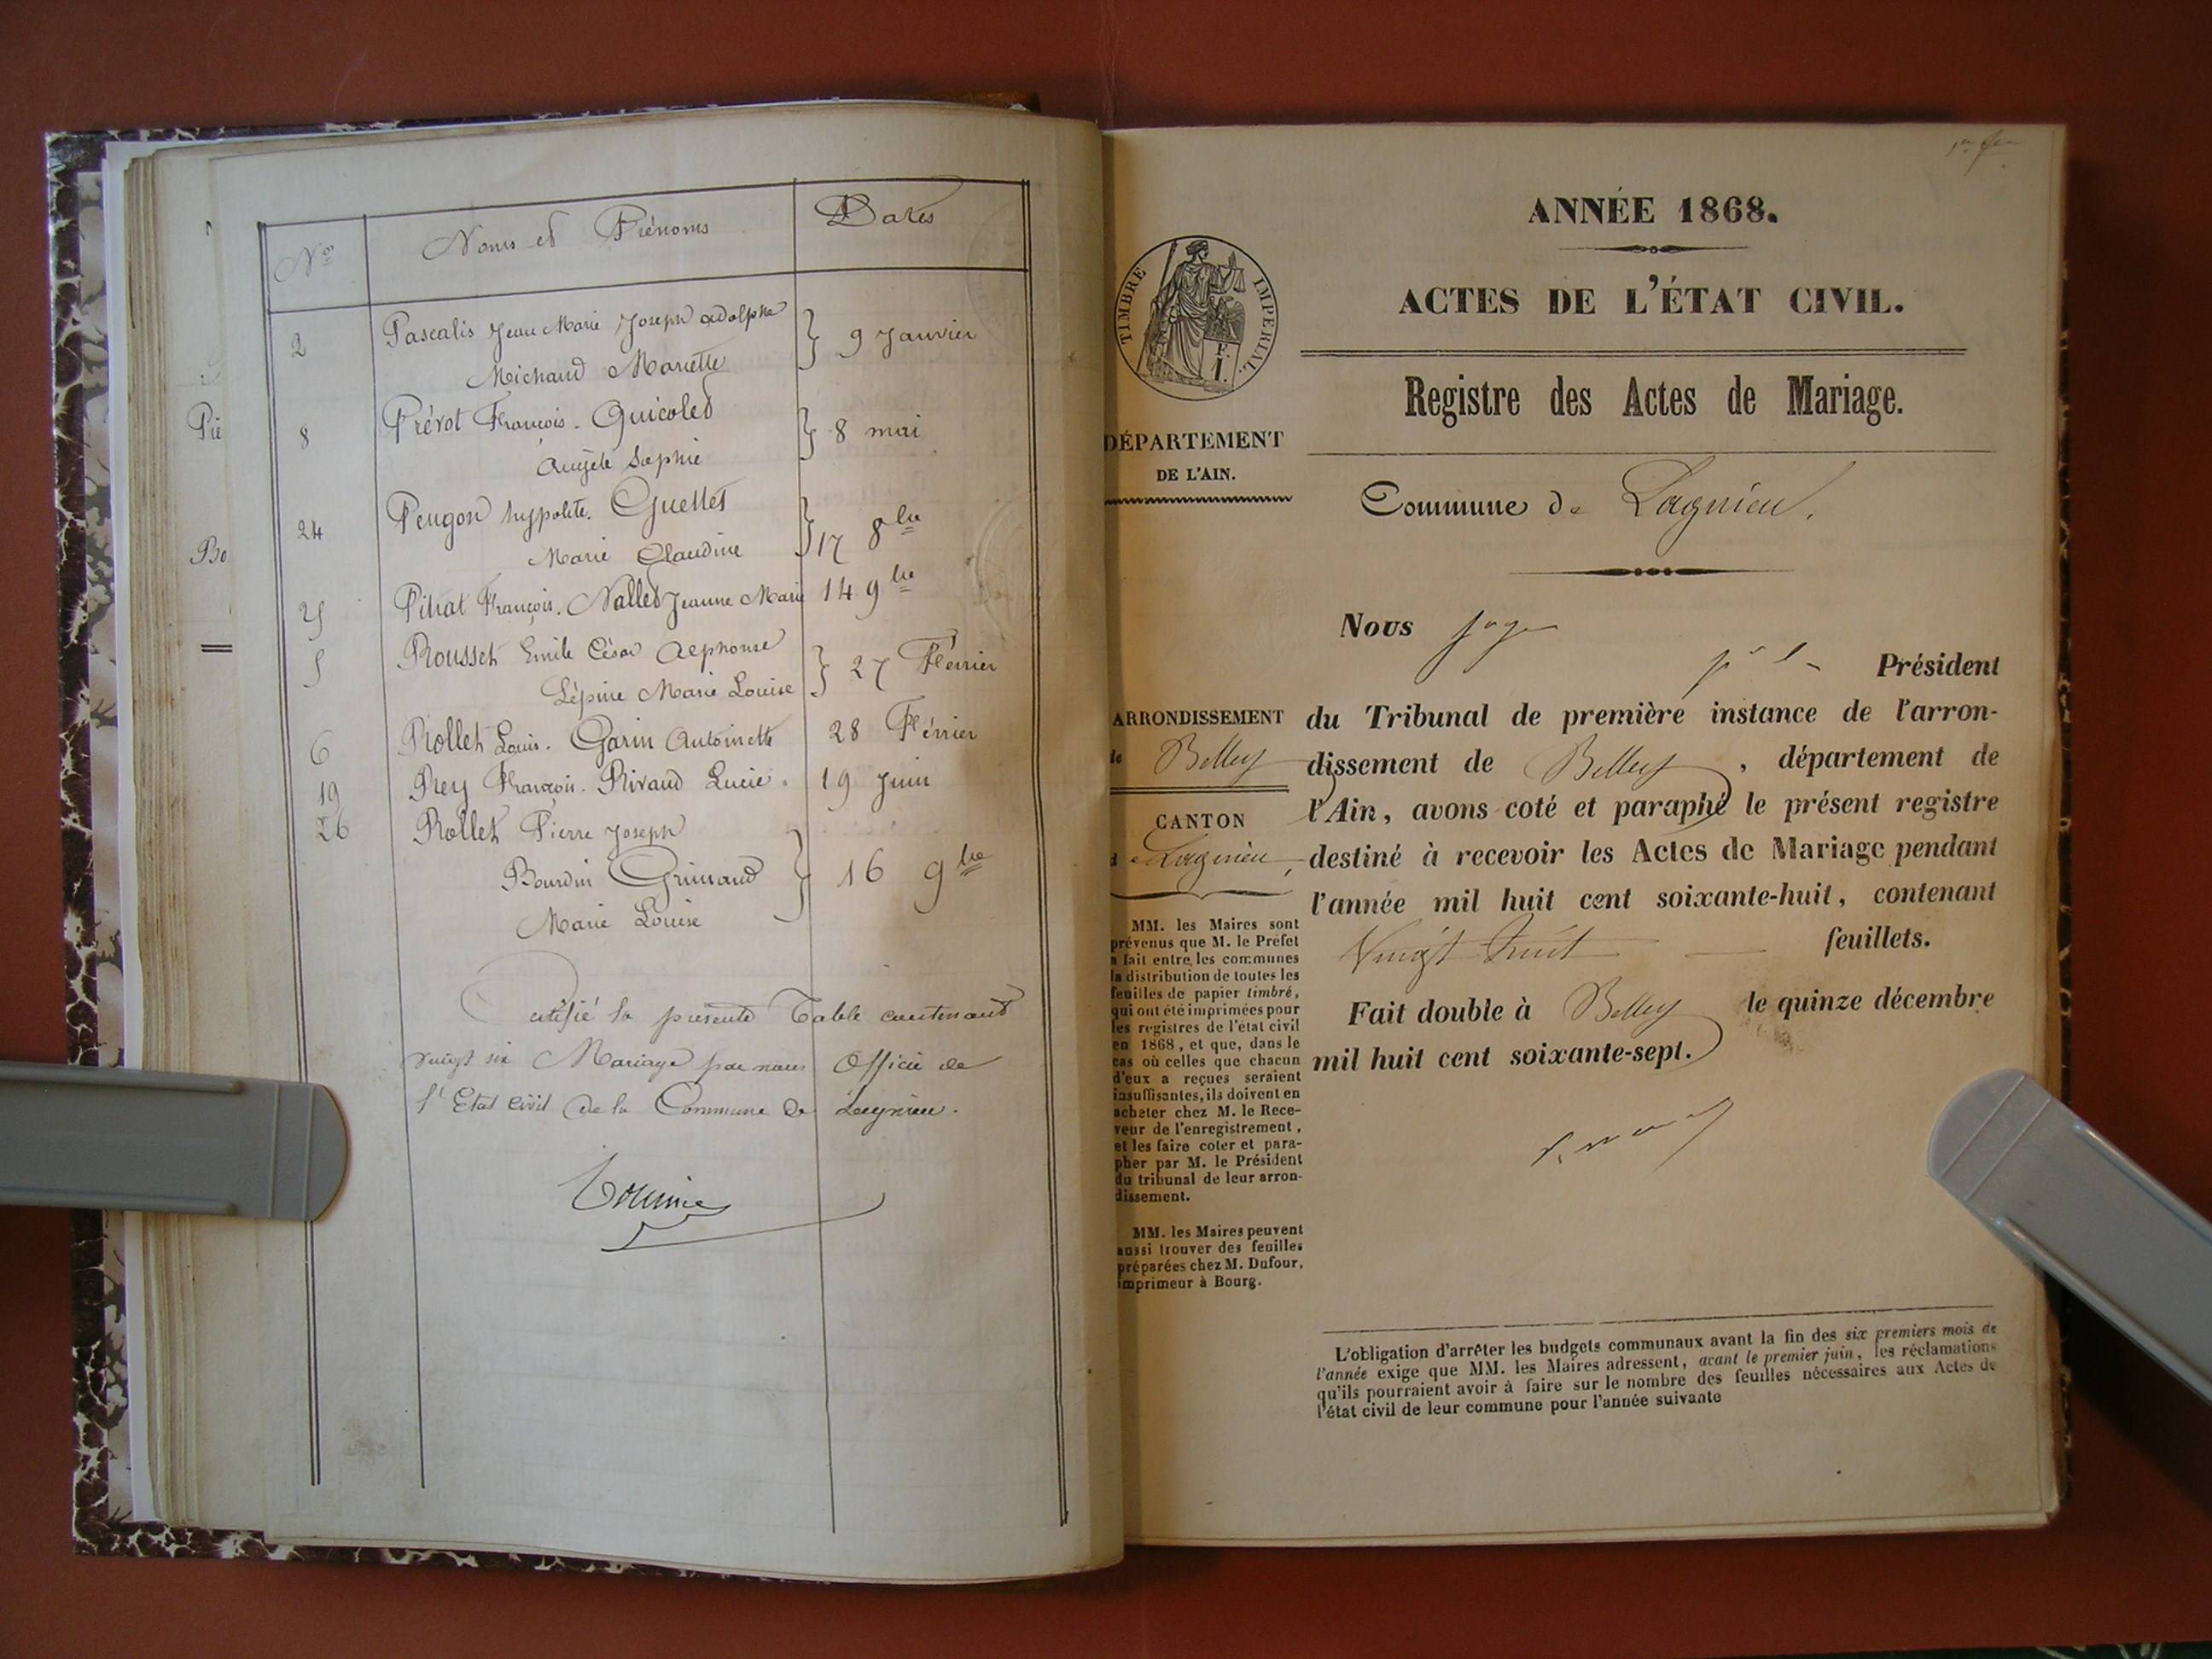 Nos
Noms et Prénoms
Dates
2
Pascalis Jean Marie Joseph adolphe
Michaud Mariette
9 Janvier
8
Prévot François. Guicoled
Angèle Sophie
8 mai
24
Peugon hypolite. Guettet
Marie Claudine
17 8bre
25
Pitrat François. Nalled Jeanne Marie
14 9bre
5
Rousset Emile César Alphonse
Lépine Marie Louise
27 Février
6
Rollet Louis. Garin Antoinette
28 Février
19
Rey François. Rivaud Lucie.
19 Juin
26
Rollet Pierre Joseph
Bourdin Grimaud
Marie Louise
16 9bre
Certifié la présente Table contenant
vingt six Mariage par nous Officier de
l'Etat civil de la Commune de Lagnieu.
Pié
Bo
ANNÉE 1868.
ACTES DE L'ÉTAT CIVIL.
Registre des Actes de Mariage.
Commune de Lagnieu.
TIMBRE IMPÉRIAL.
DÉPARTEMENT
DE L'AIN.
ARRONDISSEMENT
de Belley
CANTON
de Lagnieu
MM. les Maires sont
prévenus que M. le Préfet
a fait entre les communes
la distribution de toutes les
feuilles de papier timbré,
qui ont été imprimées pour
les registres de l'état civil
en 1868, et que, dans le
cas où celles que chacun
d'eux a reçues seraient
insuffisantes, ils doivent en
acheter chez M. le Rece-
veur de l'enregistrement,
et les faire coter et para-
pher par M. le Président
du tribunal de leur arron-
dissement.
MM. les Maires peuvent
aussi trouver des feuilles
préparées chez M. Dufour,
imprimeur à Bourg.
Nous juge
Président
du Tribunal de première instance de l'arron-
dissement de Belley, département de
l'Ain, avons coté et paraphé le présent registre
destiné à recevoir les Actes de Mariage pendant
l'année mil huit cent soixante-huit, contenant
Vingt huit feuillets.
Fait double à Belley le quinze décembre
mil huit cent soixante-sept.
L'obligation d'arrêter les budgets communaux avant la fin des six premiers mois de
l'année exige que MM. les Maires adressent, avant le premier juin, les réclamations
qu'ils pourraient avoir à faire sur le nombre des feuilles nécessaires aux Actes de
l'état civil de leur commune pour l'année suivante